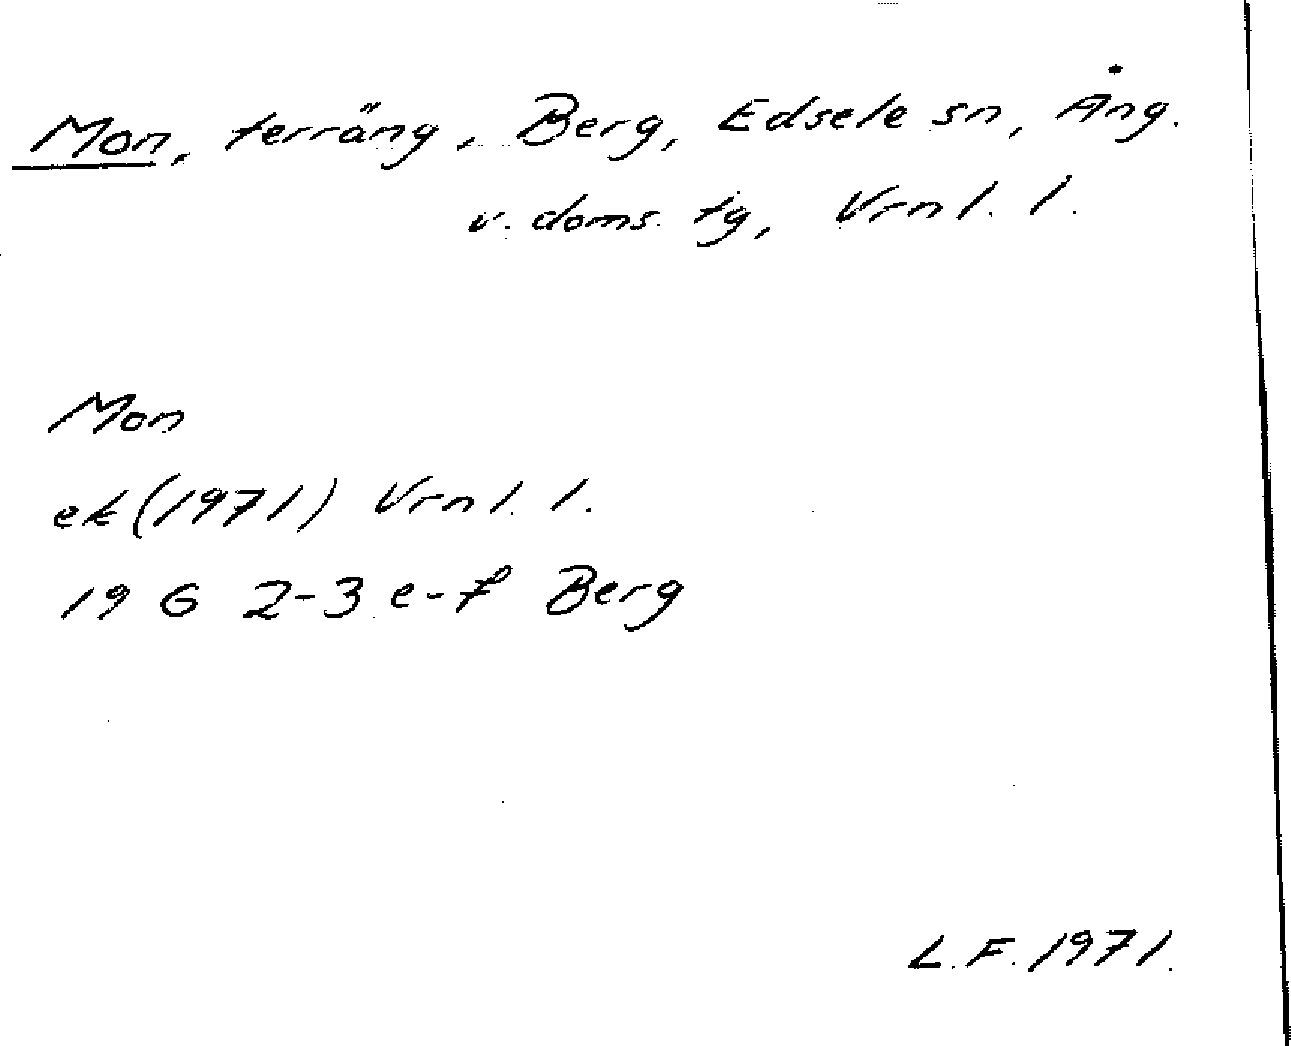 Mon, terräng, Berg, Edsele sn, Ång.
v. doms. tg, Vrnl. l.
Mon
ek (1971) Vrnl. l.
19 G 2-3 e-f Berg
L.F. 1971.